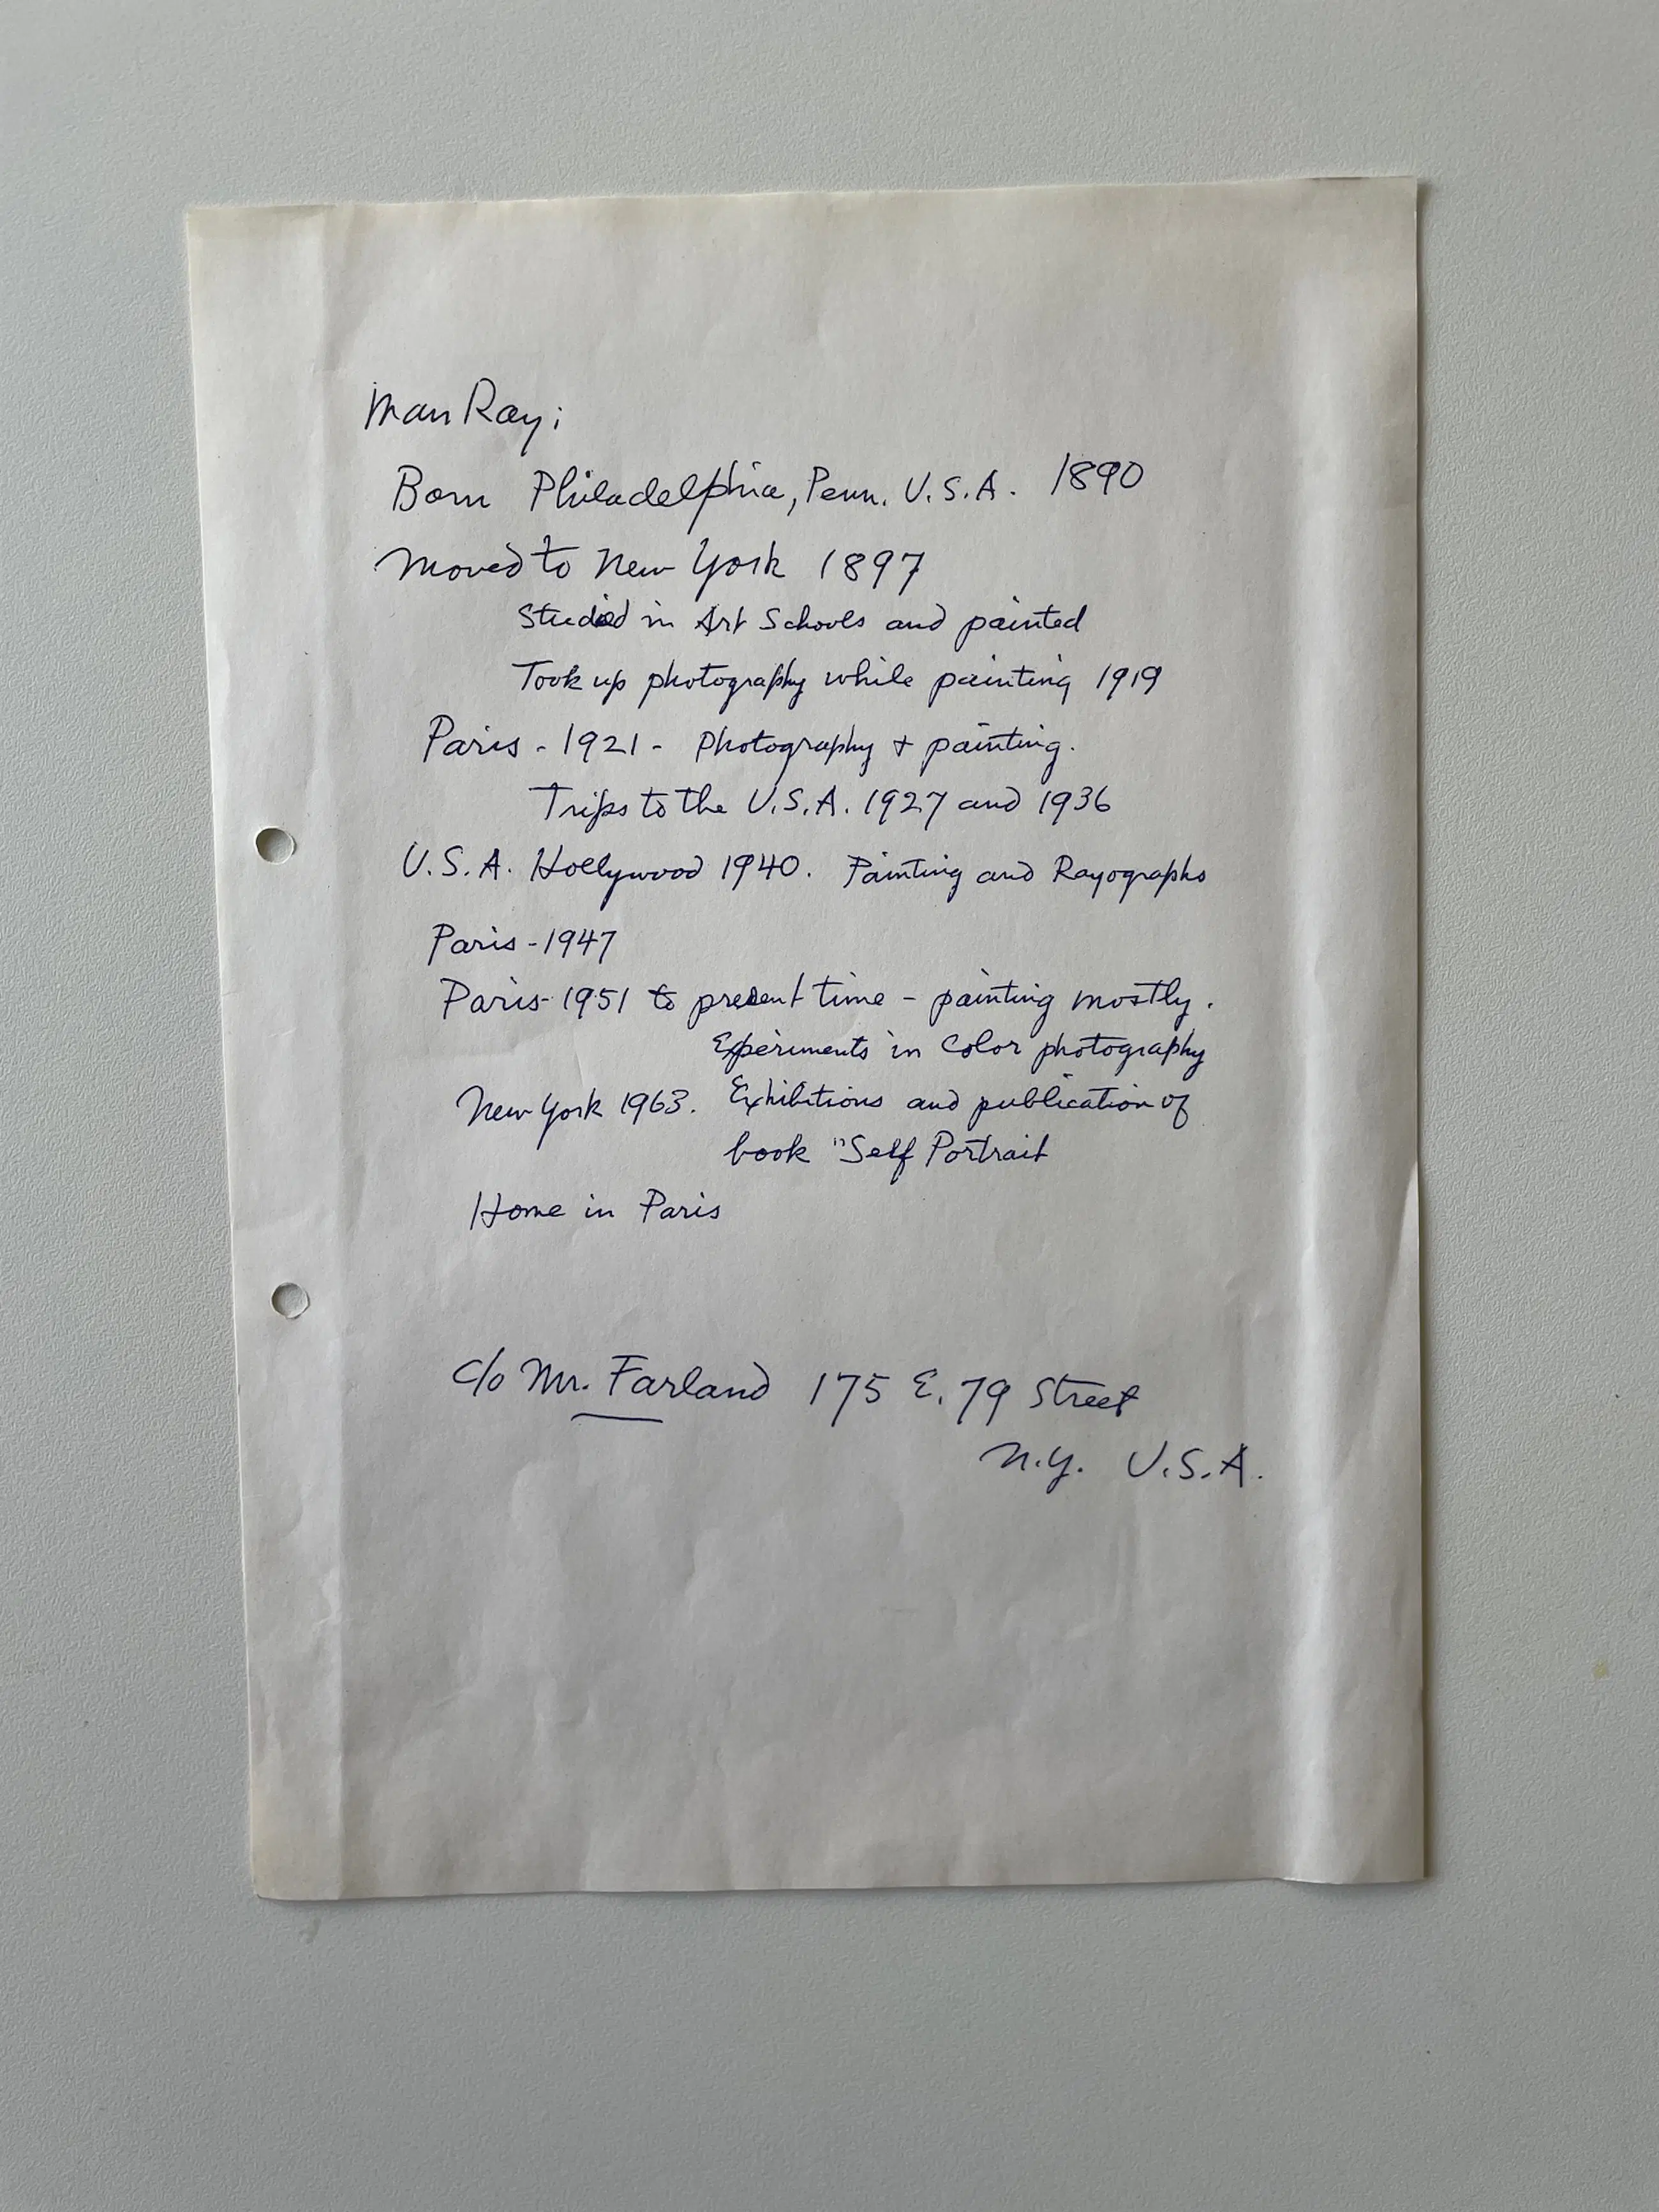 Man Ray;
Born Philadelphia, Penn. U.S.A. 1890
Moved to New York 1897
Studied in Art Schools and painted
Took up photography while painting 1919
Paris - 1921 - Photography + painting.
Trips to the U.S.A. 1927 and 1936
U.S.A. Hollywood 1940. Painting and Rayographs
Paris - 1947
Paris - 1951 to present time - painting mostly.
Experiments in Color photography
New York 1963. Exhibitions and publication of
book "Self Portrait
Home in Paris
c/o Mr. Farland 175 E. 79 Street
N.Y. U.S.A.